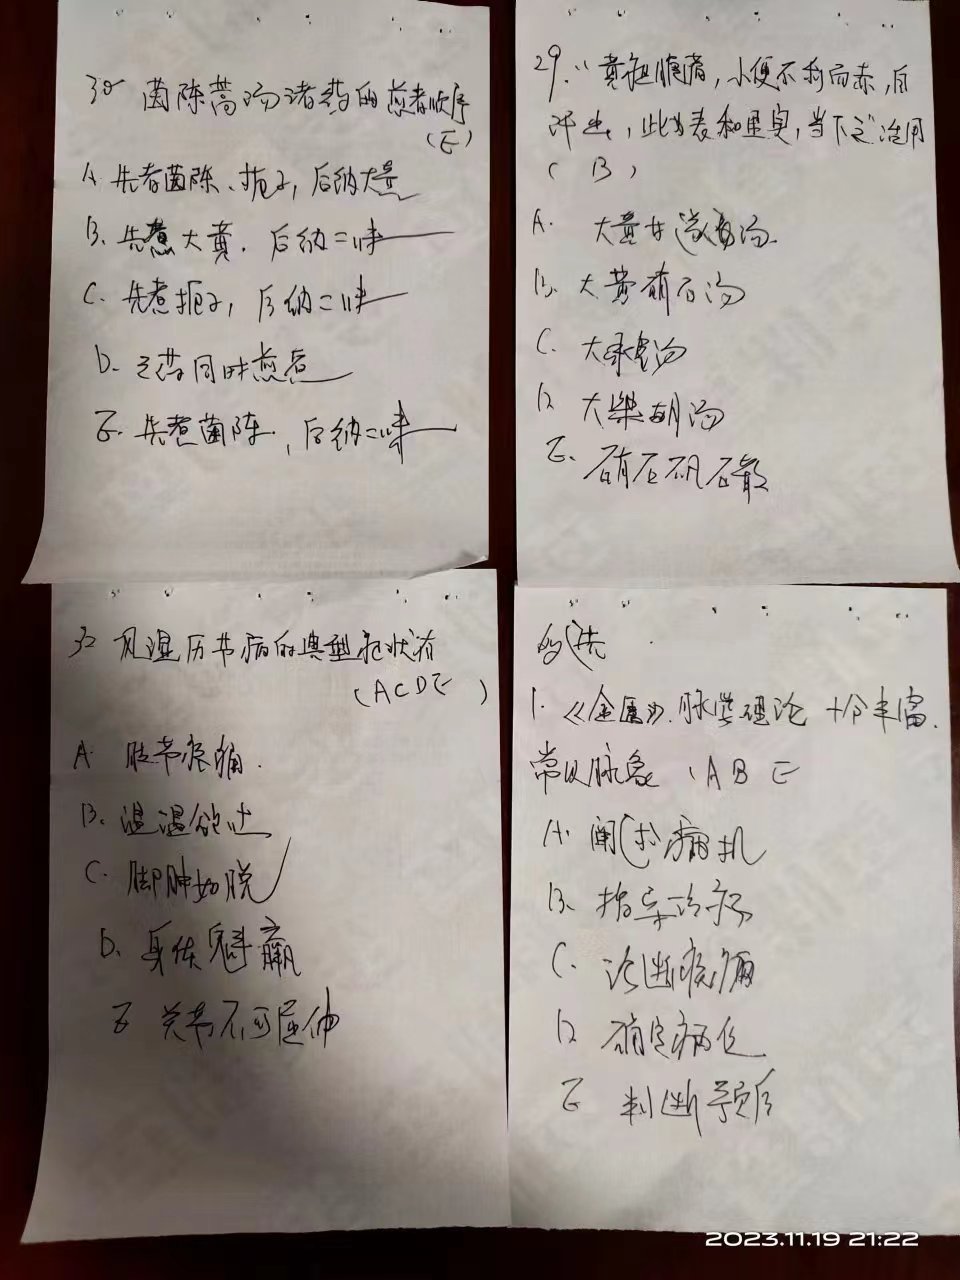 30 茵陈蒿汤诸药的煎煮顺序
(E)
A 先煮茵陈、扼子，后纳大黄
B. 先煮大黄. 后纳二味
C. 先煮扼子，后纳二味
D. 三药同时煎煮
E. 先煮茵陈，后纳二味
29. "黄疸腹满，小便不利而赤，自
汗出，此为表和里实，当下之"治用
( B )
A. 大黄甘遂汤.
B. 大黄硝石汤
C. 大承气汤
D 大柴胡汤
E. 硝石矾石散
32 风湿历节病的典型症状有
(ACDE )
A 肢节疼痛.
B. 温温欲吐
C. 脚肿如脱
D. 身体魁羸
E 关节不可屈伸
多选
1. 《金匮》脉学理论十分丰富.
常以脉象 (ABE
A. 阐述病机
B. 指导治疗
C. 论断疾病
D 确定病位
E 判断预后
2023.11.19 21:22